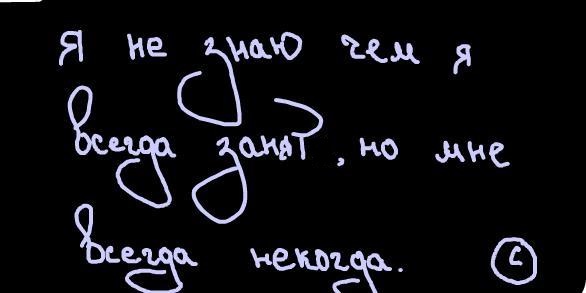 Я не знаю чем я
всегда занят, но мне
всегда некогда. ©